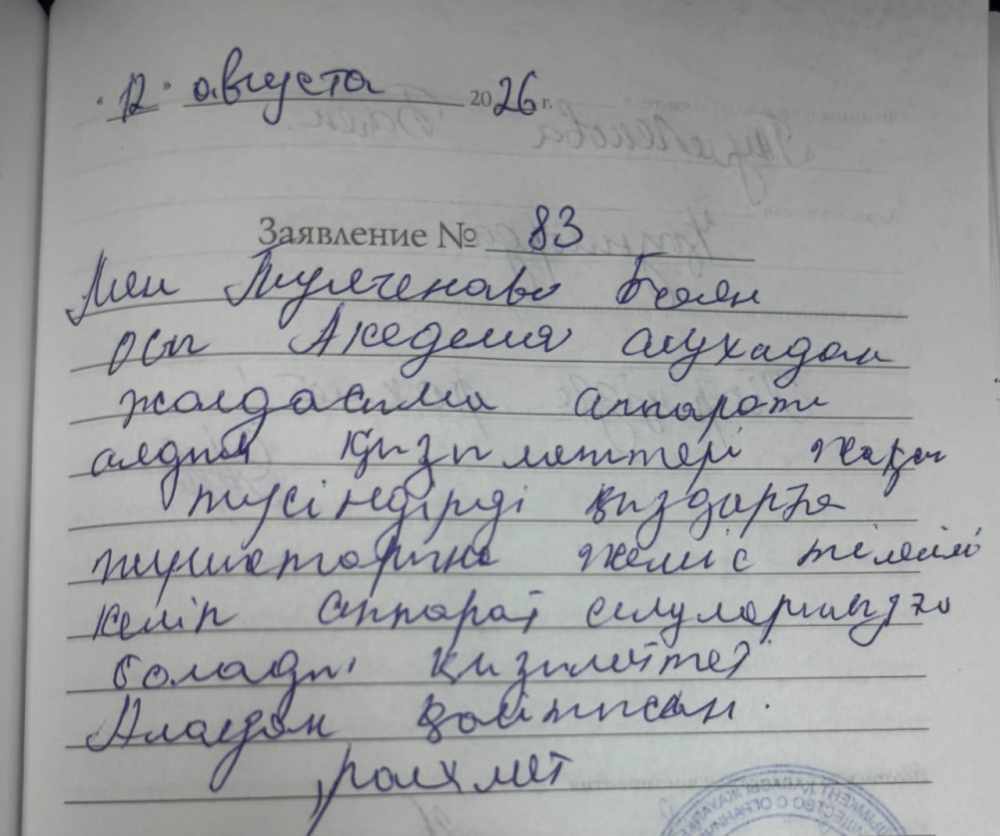 "12" августа 2026 г.
Заявление № 83
Мен Тулегенова Баян
осы Академия слухадан
жолдасыма аппарат
алдым қызметтері жақсы
түсіндірді қыздарға
жұмыстарына жеміс тілеймі
келіп аппарат алуларыңызға
болады қызметтері
Аласдан қайтысан.
рахмет